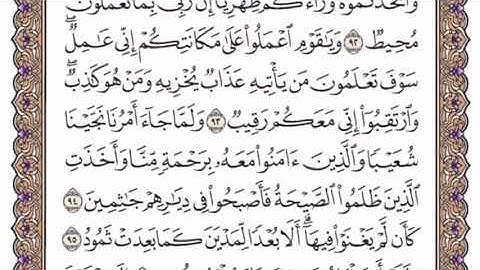 وَٱتَّخَذْتُمُوهُ وَرَآءَكُمْ ظِهْرِيًّا إِنَّ رَبِّى بِمَا تَعْمَلُونَ
مُحِيطٌ ٩٢ وَيَٰقَوْمِ ٱعْمَلُوا۟ عَلَىٰ مَكَانَتِكُمْ إِنِّى عَٰمِلٌ
سَوْفَ تَعْلَمُونَ مَن يَأْتِيهِ عَذَابٌ يُخْزِيهِ وَمَنْ هُوَ كَٰذِبٌ
وَٱرْتَقِبُوٓا۟ إِنِّى مَعَكُمْ رَقِيبٌ ٩٣ وَلَمَّا جَآءَ أَمْرُنَا نَجَّيْنَا
شُعَيْبًا وَٱلَّذِينَ ءَامَنُوا۟ مَعَهُۥ بِرَحْمَةٍ مِّنَّا وَأَخَذَتِ
ٱلَّذِينَ ظَلَمُوا۟ ٱلصَّيْحَةُ فَأَصْبَحُوا۟ فِى دِيَٰرِهِمْ جَٰثِمِينَ ٩٤
كَأَن لَّمْ يَغْنَوْا۟ فِيهَآ ۗ أَلَا بُعْدًا لِّمَدْيَنَ كَمَا بَعِدَتْ ثَمُودُ ٩٥